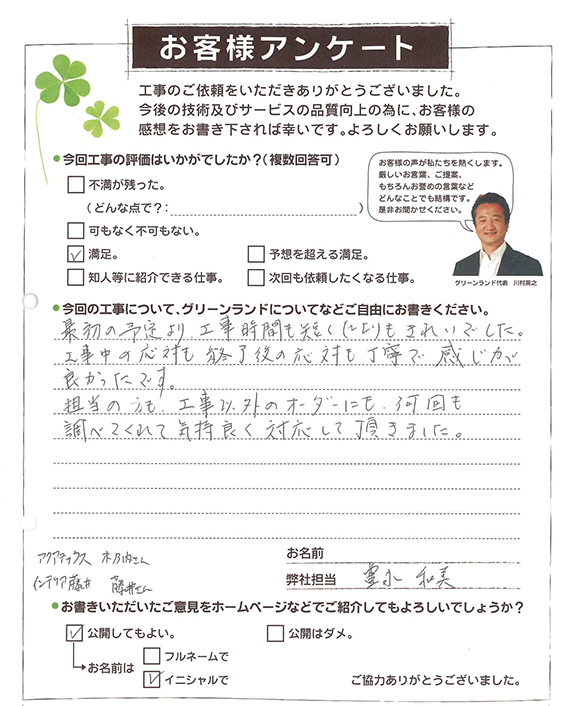 お客様アンケート
工事のご依頼をいただきありがとうございました。
今後の技術及びサービスの品質向上の為に、お客様の
感想をお書き下されば幸いです。よろしくお願いします。
●今回工事の評価はいかがでしたか?(複数回答可)
不満が残った。
(どんな点で?: )
可もなく不可もない。
満足。
予想を超える満足。
知人等に紹介できる仕事。
次回も依頼したくなる仕事。
お客様の声が私たちを熱くします。
厳しいお言葉、ご提案、
もちろんお誉めの言葉など
どんなことでも結構です。
是非お聞かせください。
グリーンランド代表 川村英之
●今回の工事について、グリーンランドについてなどご自由にお書きください。
最初の予定より工事時間も短く仕上りもきれいでした。
工事中の応対も終了後の応対も丁寧で感じが
良かったです。
担当の方も、工事以外のオーダーにも、何回も
調べてくれて気持良く対応して頂きました。
アクアテックス 木乃内さん
インテリア藤井 藤井さん
お名前
弊社担当 豊永 和美
●お書きいただいたご意見をホームページなどでご紹介してもよろしいでしょうか?
公開してもよい。
公開はダメ。
お名前は
フルネームで
イニシャルで
ご協力ありがとうございました。